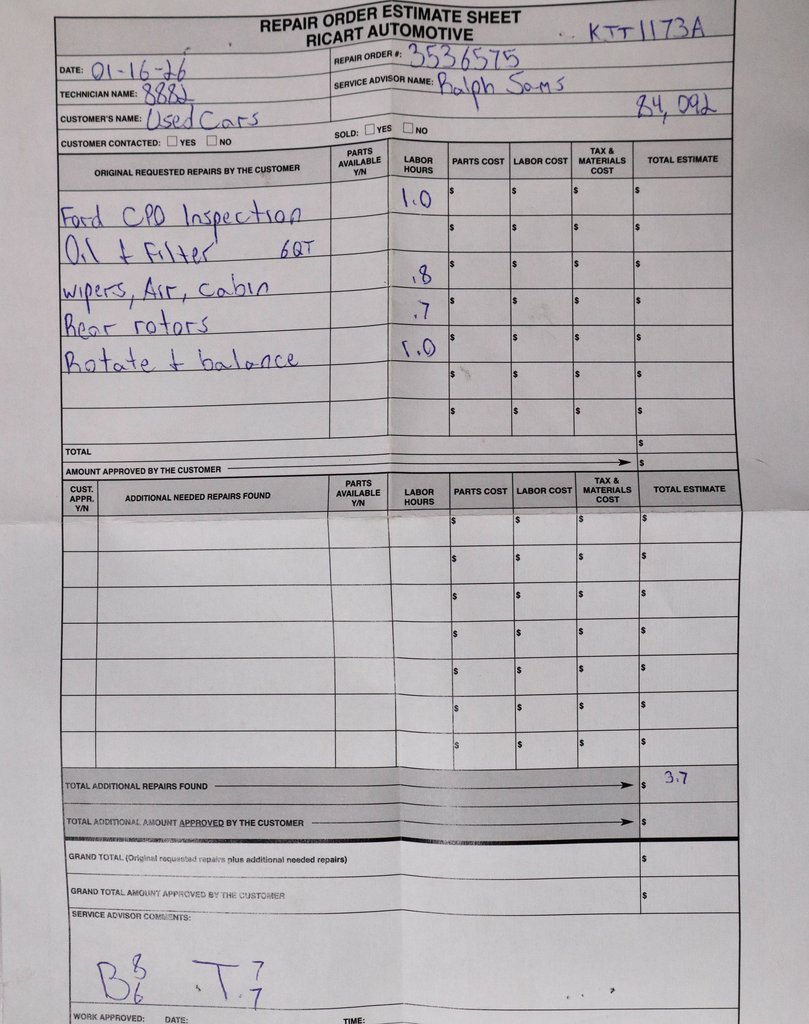 REPAIR ORDER ESTIMATE SHEET
RICART AUTOMOTIVE
KTT1173A
DATE: 01-16-26
REPAIR ORDER #: 3536575
TECHNICIAN NAME: 8882
SERVICE ADVISOR NAME: Ralph Sams
CUSTOMER'S NAME: Used Cars
84,092
CUSTOMER CONTACTED: YES NO
SOLD: YES NO
ORIGINAL REQUESTED REPAIRS BY THE CUSTOMER PARTS AVAILABLE Y/N LABOR HOURS PARTS COST LABOR COST TAX & MATERIALS COST TOTAL ESTIMATE
Ford CPO Inspection 1.0 $ $ $ $
Oil + Filter 6QT $ $ $ $
wipers, Air, cabin .8 $ $ $ $
Rear rotors .7 $ $ $ $
Rotate + balance 1.0 $ $ $ $
$ $ $ $
$ $ $ $
TOTAL $
AMOUNT APPROVED BY THE CUSTOMER $
CUST. APPR. Y/N ADDITIONAL NEEDED REPAIRS FOUND PARTS AVAILABLE Y/N LABOR HOURS PARTS COST LABOR COST TAX & MATERIALS COST TOTAL ESTIMATE
$ $ $ $
$ $ $ $
$ $ $ $
$ $ $ $
$ $ $ $
$ $ $ $
$ $ $ $
TOTAL ADDITIONAL REPAIRS FOUND $ 3.7
TOTAL ADDITIONAL AMOUNT APPROVED BY THE CUSTOMER $
GRAND TOTAL (Original requested repairs plus additional needed repairs) $
GRAND TOTAL AMOUNT APPROVED BY THE CUSTOMER $
SERVICE ADVISOR COMMENTS:
B 8 6 T. 7 7
WORK APPROVED: DATE: TIME: